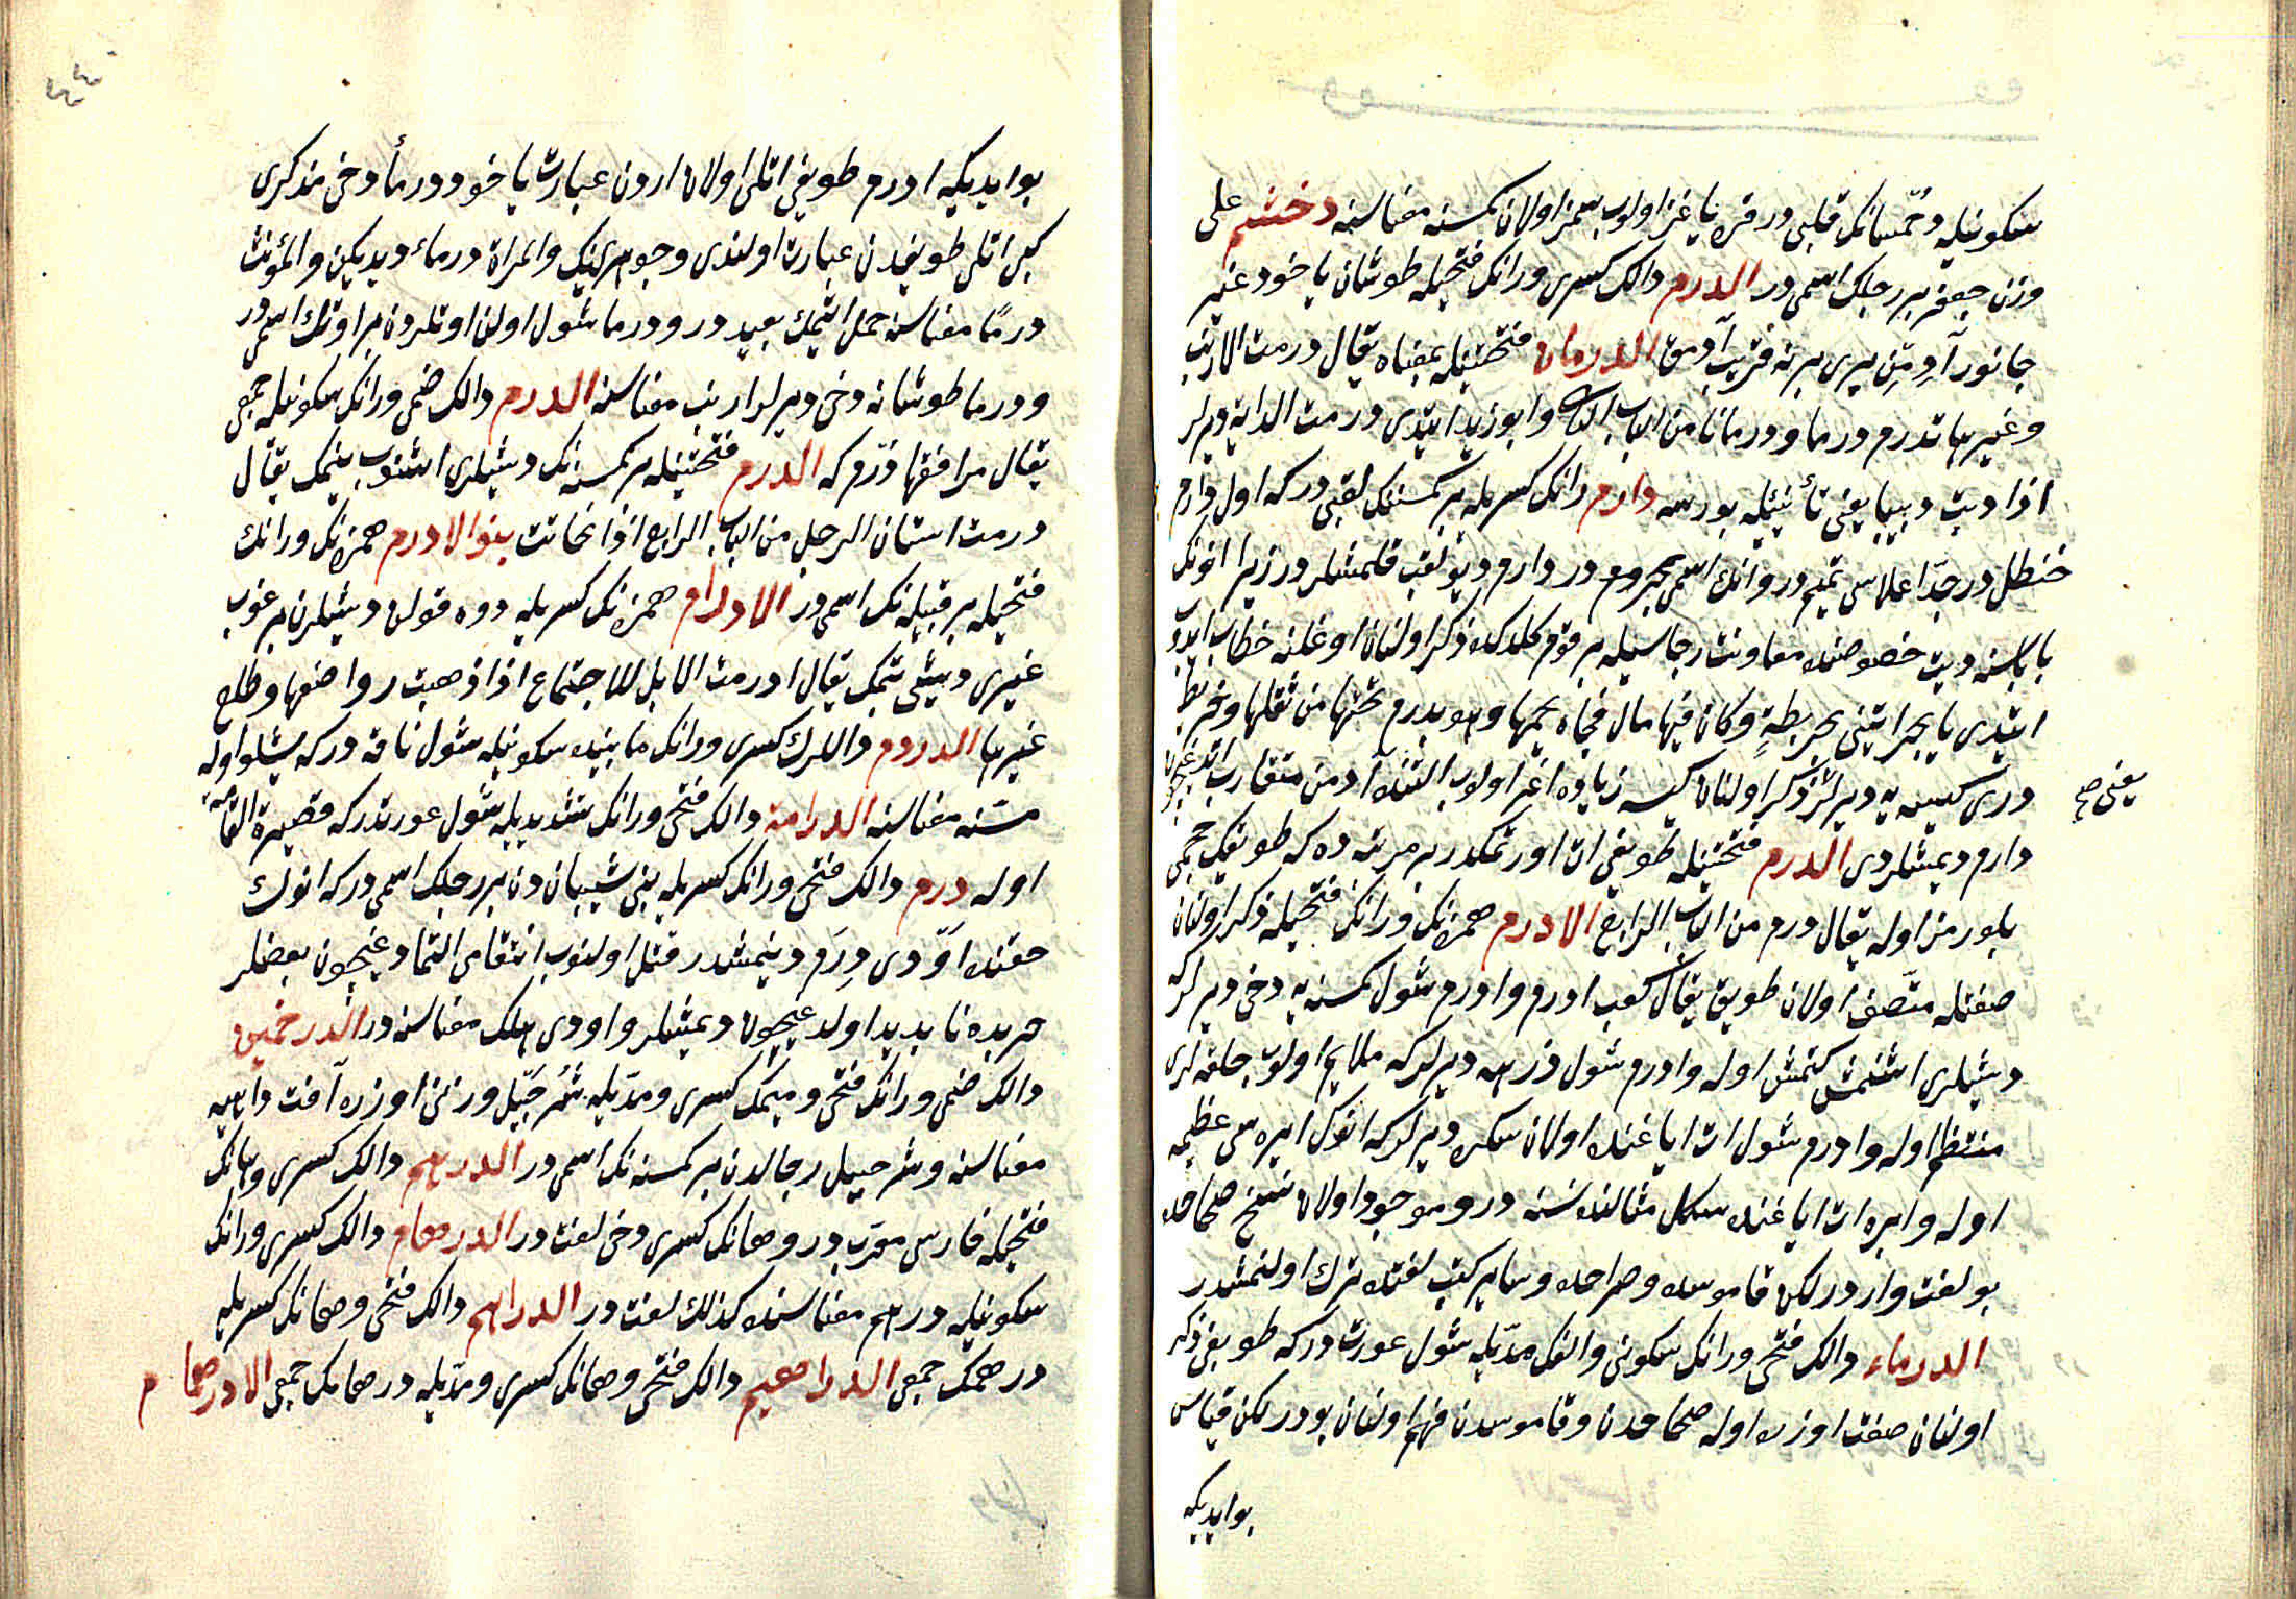 سكونيله دخمسانك قلبی در قره یاغز اولوب سمز اولان كمسنه معناسنه دخشم علی
وزن جعفر بر رجلك اسمی در الدرم دالك كسری ورانك فتحیله طوشان یاخود غیر
جانور آدمن بری برنه قریب آدمق الدرمان فتحتینله بمعناه یقال درمت الارنب
وغیرها تدرم درما ودرمانا من الباب الثانی وابوزید ایتدی درمت الدابة دیرلر
اذا دبت دبیبا یعنی تأنیله یورسه دارم رانك كسریله بر كمسنه نك لقبی در كه اول دارم
حنظله در جد اعلاسی تمیم در وانك اسمی بحر ومع در دارم دیو لقب قلمشلر در زیرا انوك
باباسنه دیت خصوصنده معاونت رجاسیله بر قوم كلدكده ذكر اولنان اوغلنه خطاب ایدوب
ایتدی یا بحر ایتنی بخریطة وكان فیها مال فجاء یحملها وهو یدرم تحتها من ثقلها وخریطه
دری كیسه یه دیرلر ذكر اولنان كیسه زیاده اغر اولوب التنده آدمن متقارب اتدوكیچون
یعنی صح
دارم دیمشلردی الدرم فتحتینله طوبغی ات اورتمكدر بر مرتبه ده كه طوبغك حجمی
بلورمز اوله یقال درم من الباب الرابع الادرم همزه نك ورانك فتحیله ذكر اولنان
صفتله متصف اولان طوبق یقال كعب ادرم وادرم شول كمسنه یه دخی دیرلر كه
دیشلری اشنمش كتمش اوله وادرم شول زرهه دیرلر كه ملایم اولوب حلقه لری
منتظم اوله وادرم شول ات ایاغنده اولان سكره دیرلر كه انوك ابره سی عظیمه
اوله وابره ات ایاغنده سكل مثالنده نسنه در وموجود اولان نسخ صحاحده
بو لغت وارد در لكن قاموسده وصراحده وسایر كتب لغتده ترك اولنمشدر
الدرماء دالك فتحی ورانك سكونی والفك مدیله شول عورت در كه طوبغی ذكر
اولنان صفت اوزره اوله صحاحدن وقاموسدن فهم اولنان بو در لكن قیاس
بو ایدیكه
بو ایدیكه ادرم طوبغی اتلی اولان اردن عبارت یاخود درمأ دخی مذكری
كبی اتلی طوبغیدن عبارت اولندی وجوهرینك والمراة درماء دیدیكین والمؤنث
درما معناسنه حمل ایتمك بعید در ودرما شول اولن اوتلردن بر اوتك اسمی در
ودرما طوشانه دخی دیرلر ارنب معناسنه الدرم دالك ضمی ورانك سكونیله جمعی
یقال مرافقها درم كه الدرم فتحتینله بر كمسنه نك دیشلری اشنوب ینمك یقال
درمت اسنان الرجل من الباب الرابع اذا تحاتت بنو الادرم همزه نك ورانك
فتحیله بر قبیله نك اسمی در الادرام همزه نك كسریله دوه قولن دیشلرن براغوب
غیری دیشی بتمك یقال ادرمت الابل للاجتماع اذا ذهبت رواضعها وطلع
غیرها الدردم دالرك كسری ورانك مابینده سكونیله شول ناقه در كه یشلو اوله
مسنه معناسنه الدرامة دالك فتحی ورانك تشدیدیله شول عورتدر كه قصیرة القامه
اوله درم دالك فتحی ورانك كسریله بنی شیباندن بر رجلك اسمی در كه انوك
حقنده اودی درم دینمشدر قتل اولنوب انتقامی التمادوغیچون بعضلر
حربده نابدید اولدوغیچون دیمشلر واودی هلك معناسنه در الدرخمین
دالك ضمی ورانك فتحی ومیمك كسری ومدیله شرحبیل وزنی اوزره آفت داهیه
معناسنه وشرحبیل رجالدن بر كمسنه نك اسمی در الدرهم دالك كسری وهانك
فتحیله فارسی معرب در وهانك كسری دخی لغت در الدرهام دالك كسری ورانك
سكونیله درهم معناسنده كذلك لغت در الدراهم دالك فتحی وهانك كسریله
درهمك جمعی الدراهیم دالك فتحی وهانك كسری ومدیله درهامك جمعی الادرهمام